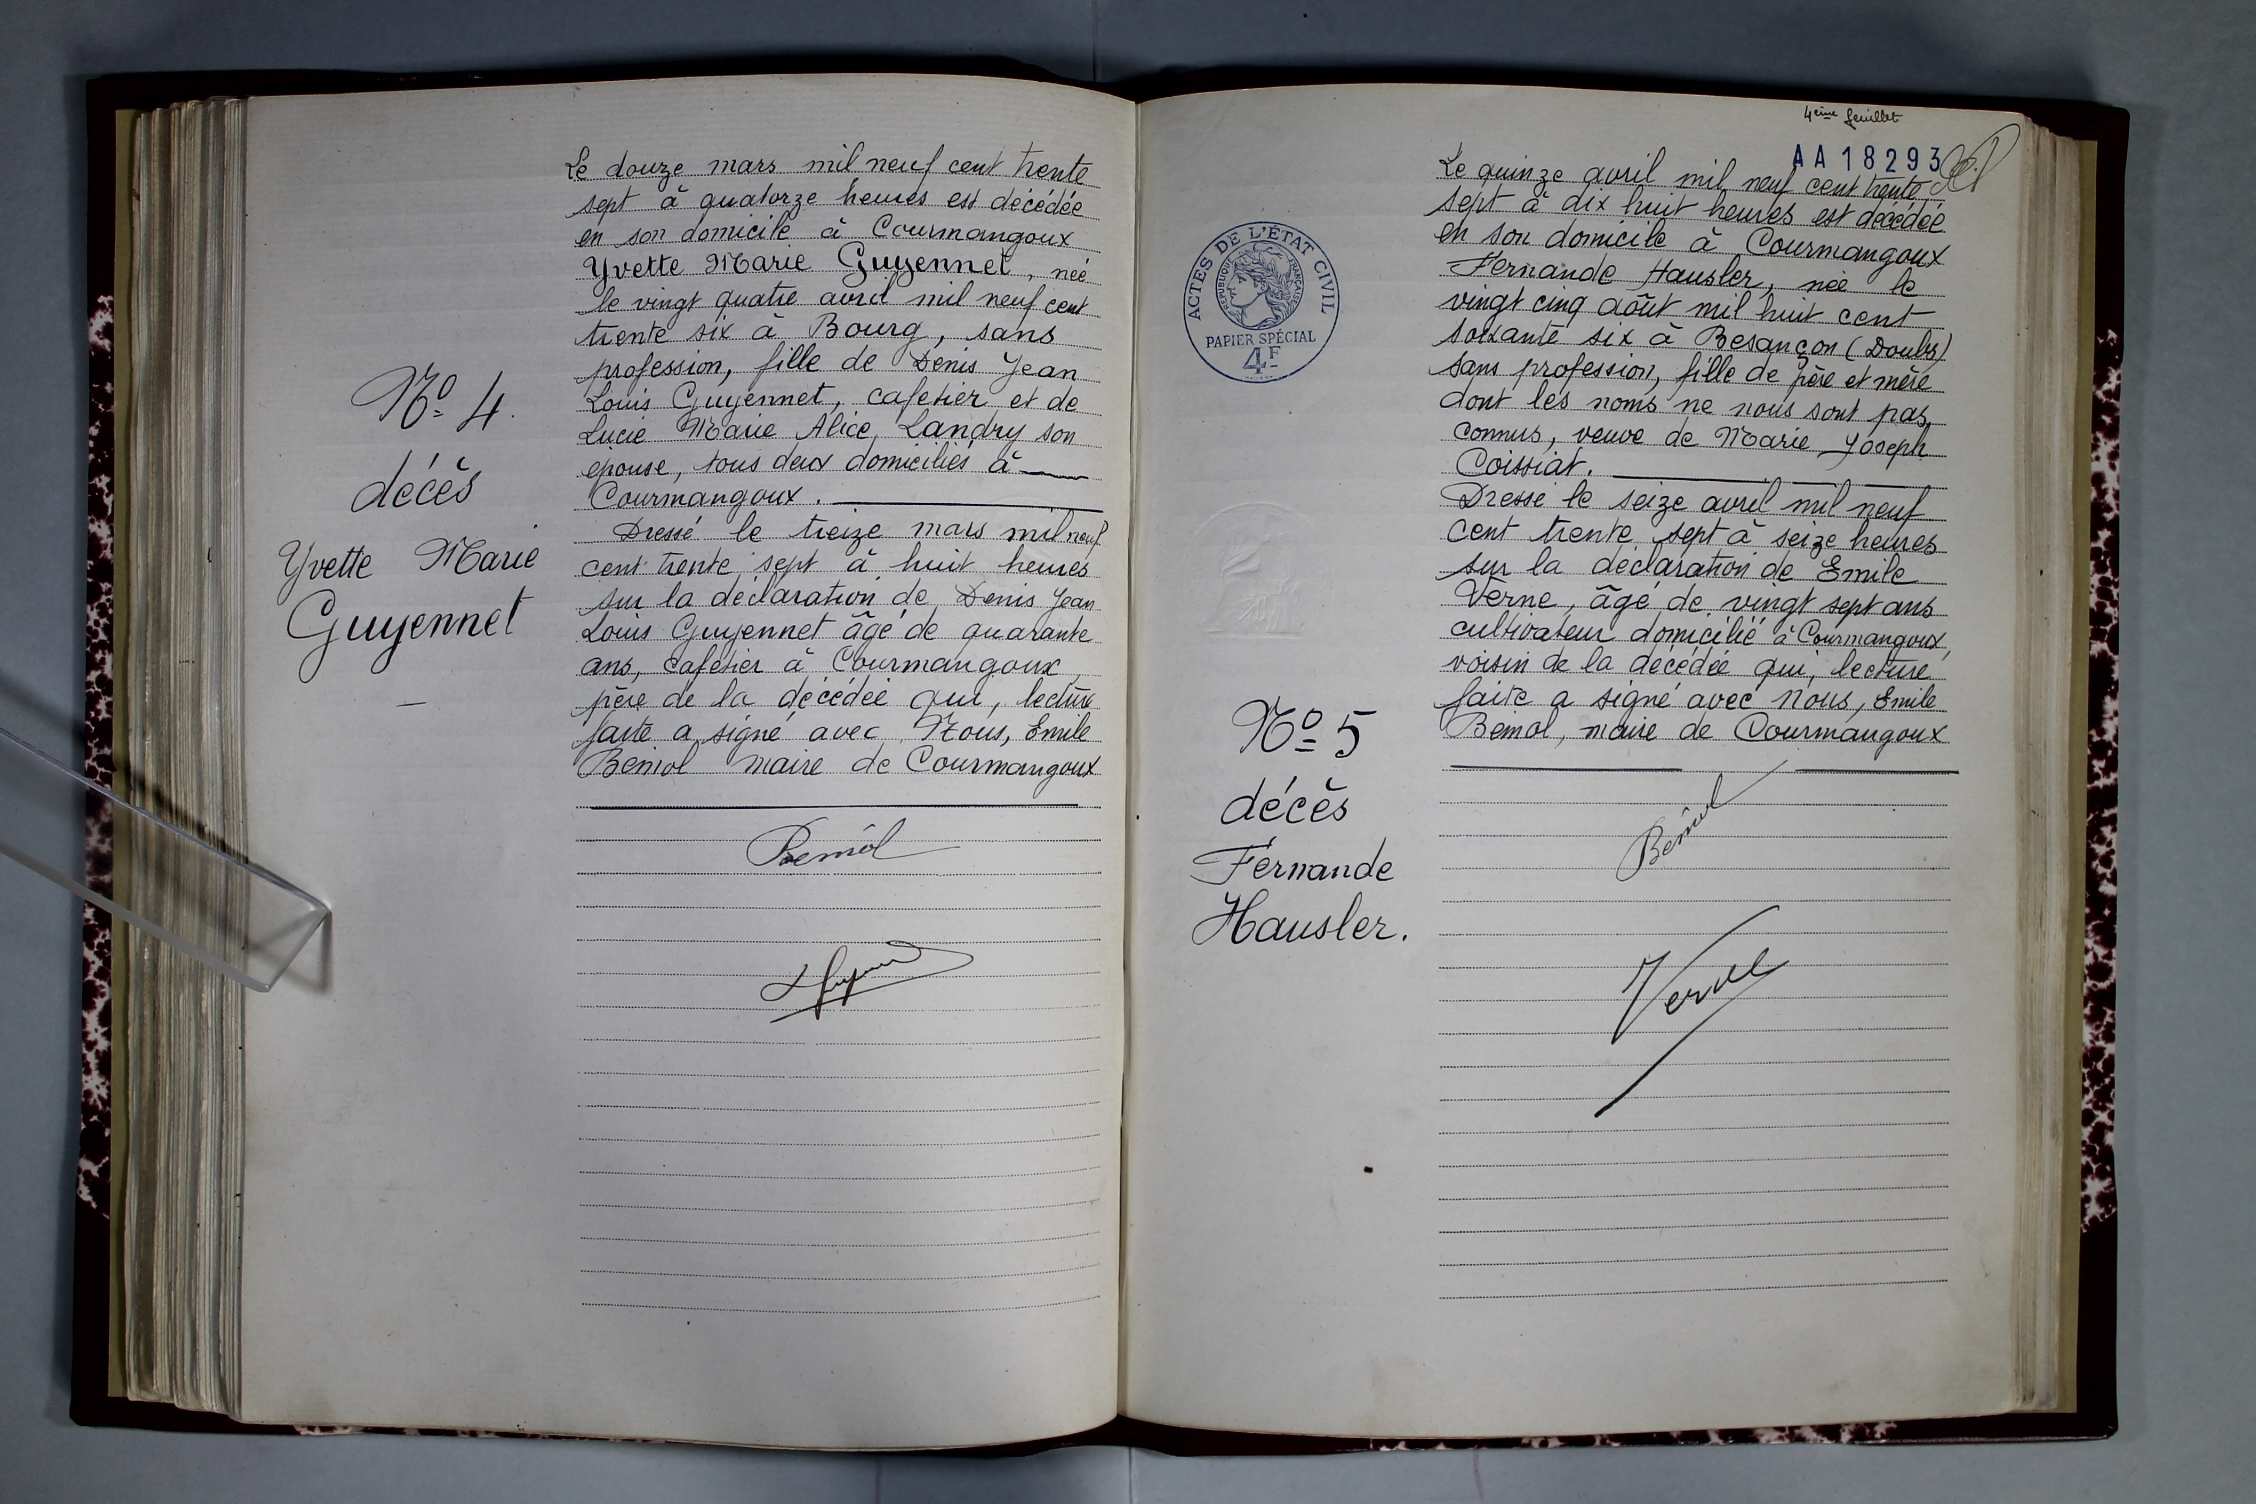 Le douze mars mil neuf cent trente
sept à quatorze heures est décédée
en son domicile à Courmangoux
Yvette Marie Guyennet, née
le vingt quatre avril mil neuf cent
trente six à Bourg, sans
profession, fille de Denis Jean
Louis Guyennet, cafetier et de
Lucie Marie Alice Landry son
épouse, tous deux domiciliés à
Courmangoux.
Dressé le treize mars mil neuf
cent trente sept à huit heures
sur la déclaration de Denis Jean
Louis Guyennet âgé de quarante
ans, cafetier à Courmangoux
père de la décédée qui, lecture
faite a signé avec Nous, Emile
Bémol maire de Courmangoux
Bémol
No 4.
décès
Yvette Marie
Guyennet
4ème feuillet
AA18293
Le quinze avril mil neuf cent trente
sept à dix huit heures est décédée
en son domicile à Courmangoux
Fernande Hausler, née le
vingt cinq août mil huit cent
soixante six à Besançon (Doubs)
sans profession, fille de père et mère
dont les noms ne nous sont pas
connus, veuve de Marie Joseph
Coissiat.
Dressé le seize avril mil neuf
cent trente sept à seize heures
sur la déclaration de Emile
Verne, âgé de vingt sept ans
cultivateur domicilié à Courmangoux,
voisin de la décédée qui, lecture
faite a signé avec Nous, Emile
Bémol, maire de Courmangoux
Bémol
Verne
ACTES DE L'ÉTAT CIVIL
RÉPUBLIQUE FRANÇAISE
PAPIER SPÉCIAL
4F
No 5
décès
Fernande
Hausler.